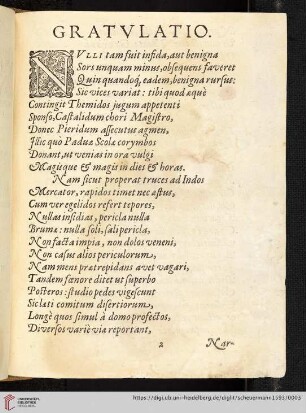 GRATVLATIO.
NVLLI tam fuit infida, aut benigna
Sors unquam minus, obsequens faveret
Quin quandoq́, eadem, benigna rursus:
Sic vices variat: tibi quod æquè
Contingit Themidos jugum appetenti
Sponso, Castalidum chori Magistro,
Donec Pieridum assecutus agmen,
Illic quo Paduæ Scola corymbos
Donant, ut venias in ora vulgi
Magisque & magis in dies & horas.
Nam sicut properat truces ad Indos
Mercator, rapidos timet nec æstus,
Cum ver egelidos refert tepores,
Nullas insidias, pericla nulla
Brumæ: nulla soli, sali pericla,
Non facta impia, non dolos veneni,
Non casu alios periculorum,
Nam mens prætrepidans avet vagari,
Tandem fœnore ditet ut superbo
Posteros: studio pedes vigescunt
Sic lati comitum disertiorum,
Longè quos simul à domo profectos,
Diversos variè via reportant,
2
Nar-
UNIVERSITÄTS-
BIBLIOTHEK
HEIDELBERG
https://digi.ub.uni-heidelberg.de/diglit/scheuermann1593/0003